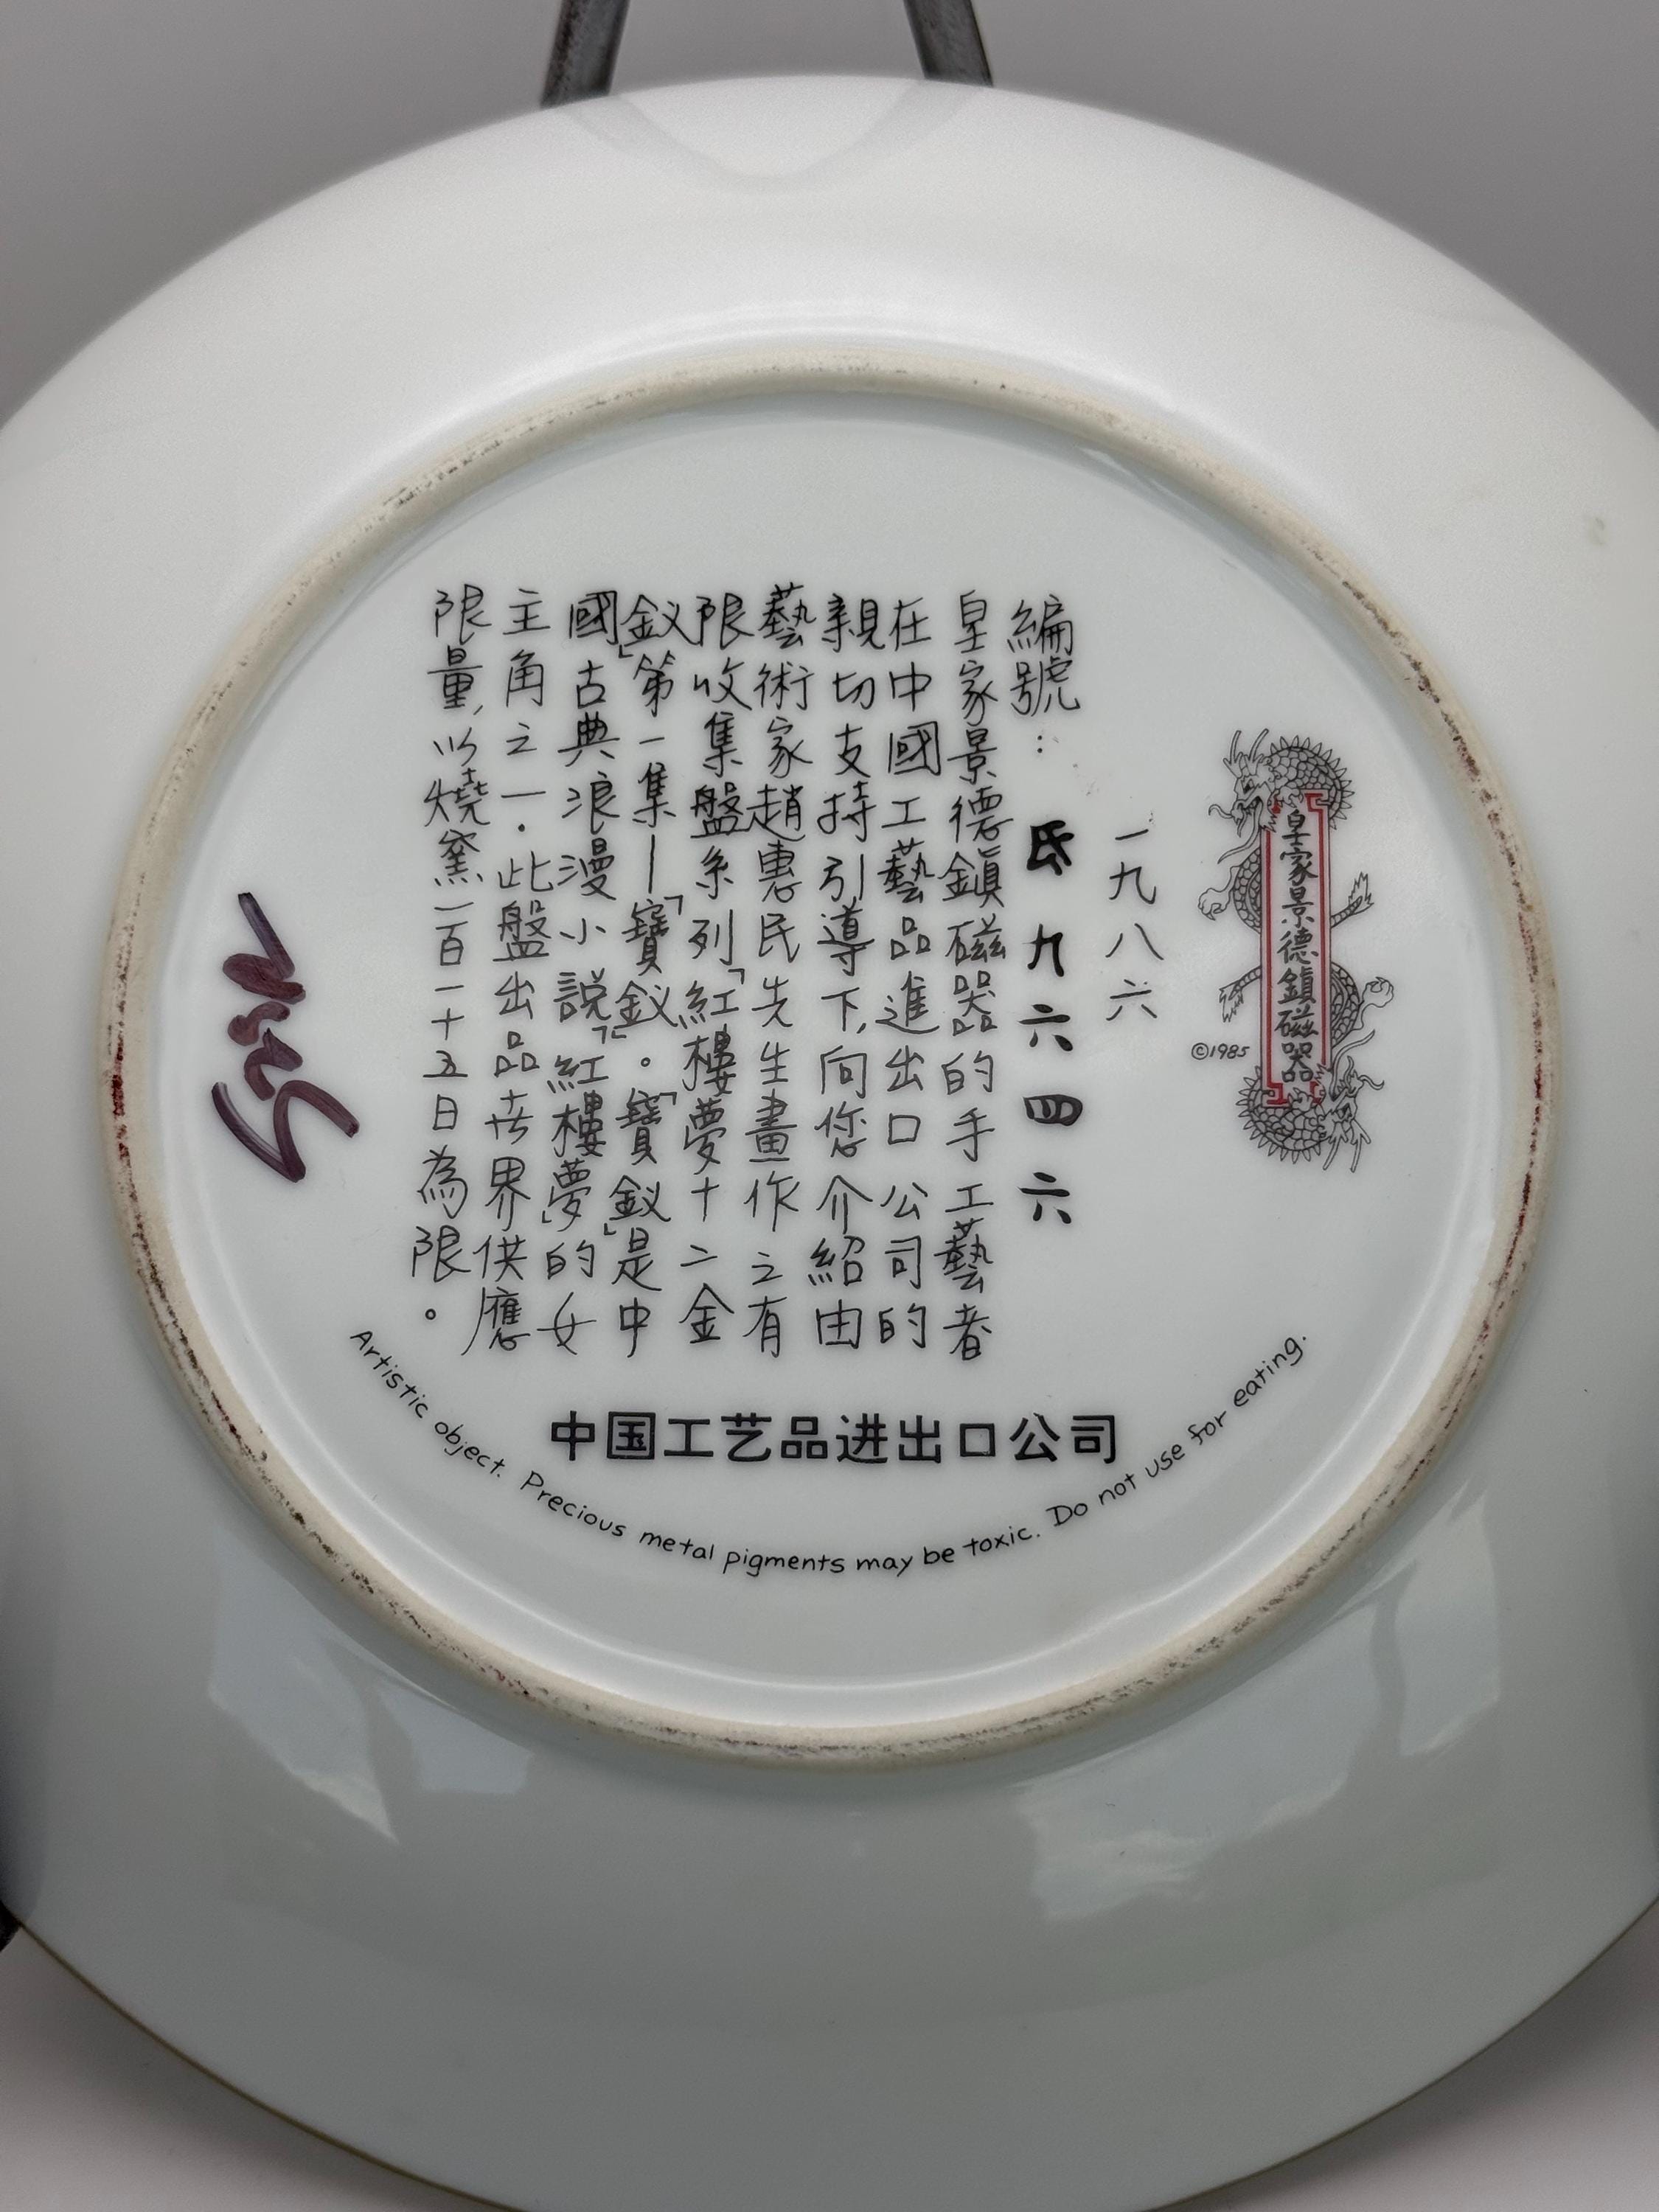 皇家景德鎮磁器
©1985
一九八六
編號：氏九六四六
皇家景德鎮磁器的手工藝者
在中國工藝品進出口公司的
親切支持引導下,向您介紹由
藝術家趙惠民先生畫作之有
限收集盤系列「紅樓夢十二金
釵」第一集—「寶釵」。「寶釵」是中
國古典浪漫小說「紅樓夢」的女
主角之一.此盤出品世界供應
限量,以燒窯一百一十五日為限。
中国工艺品进出口公司
Artistic object. Precious metal pigments may be toxic. Do not use for eating.